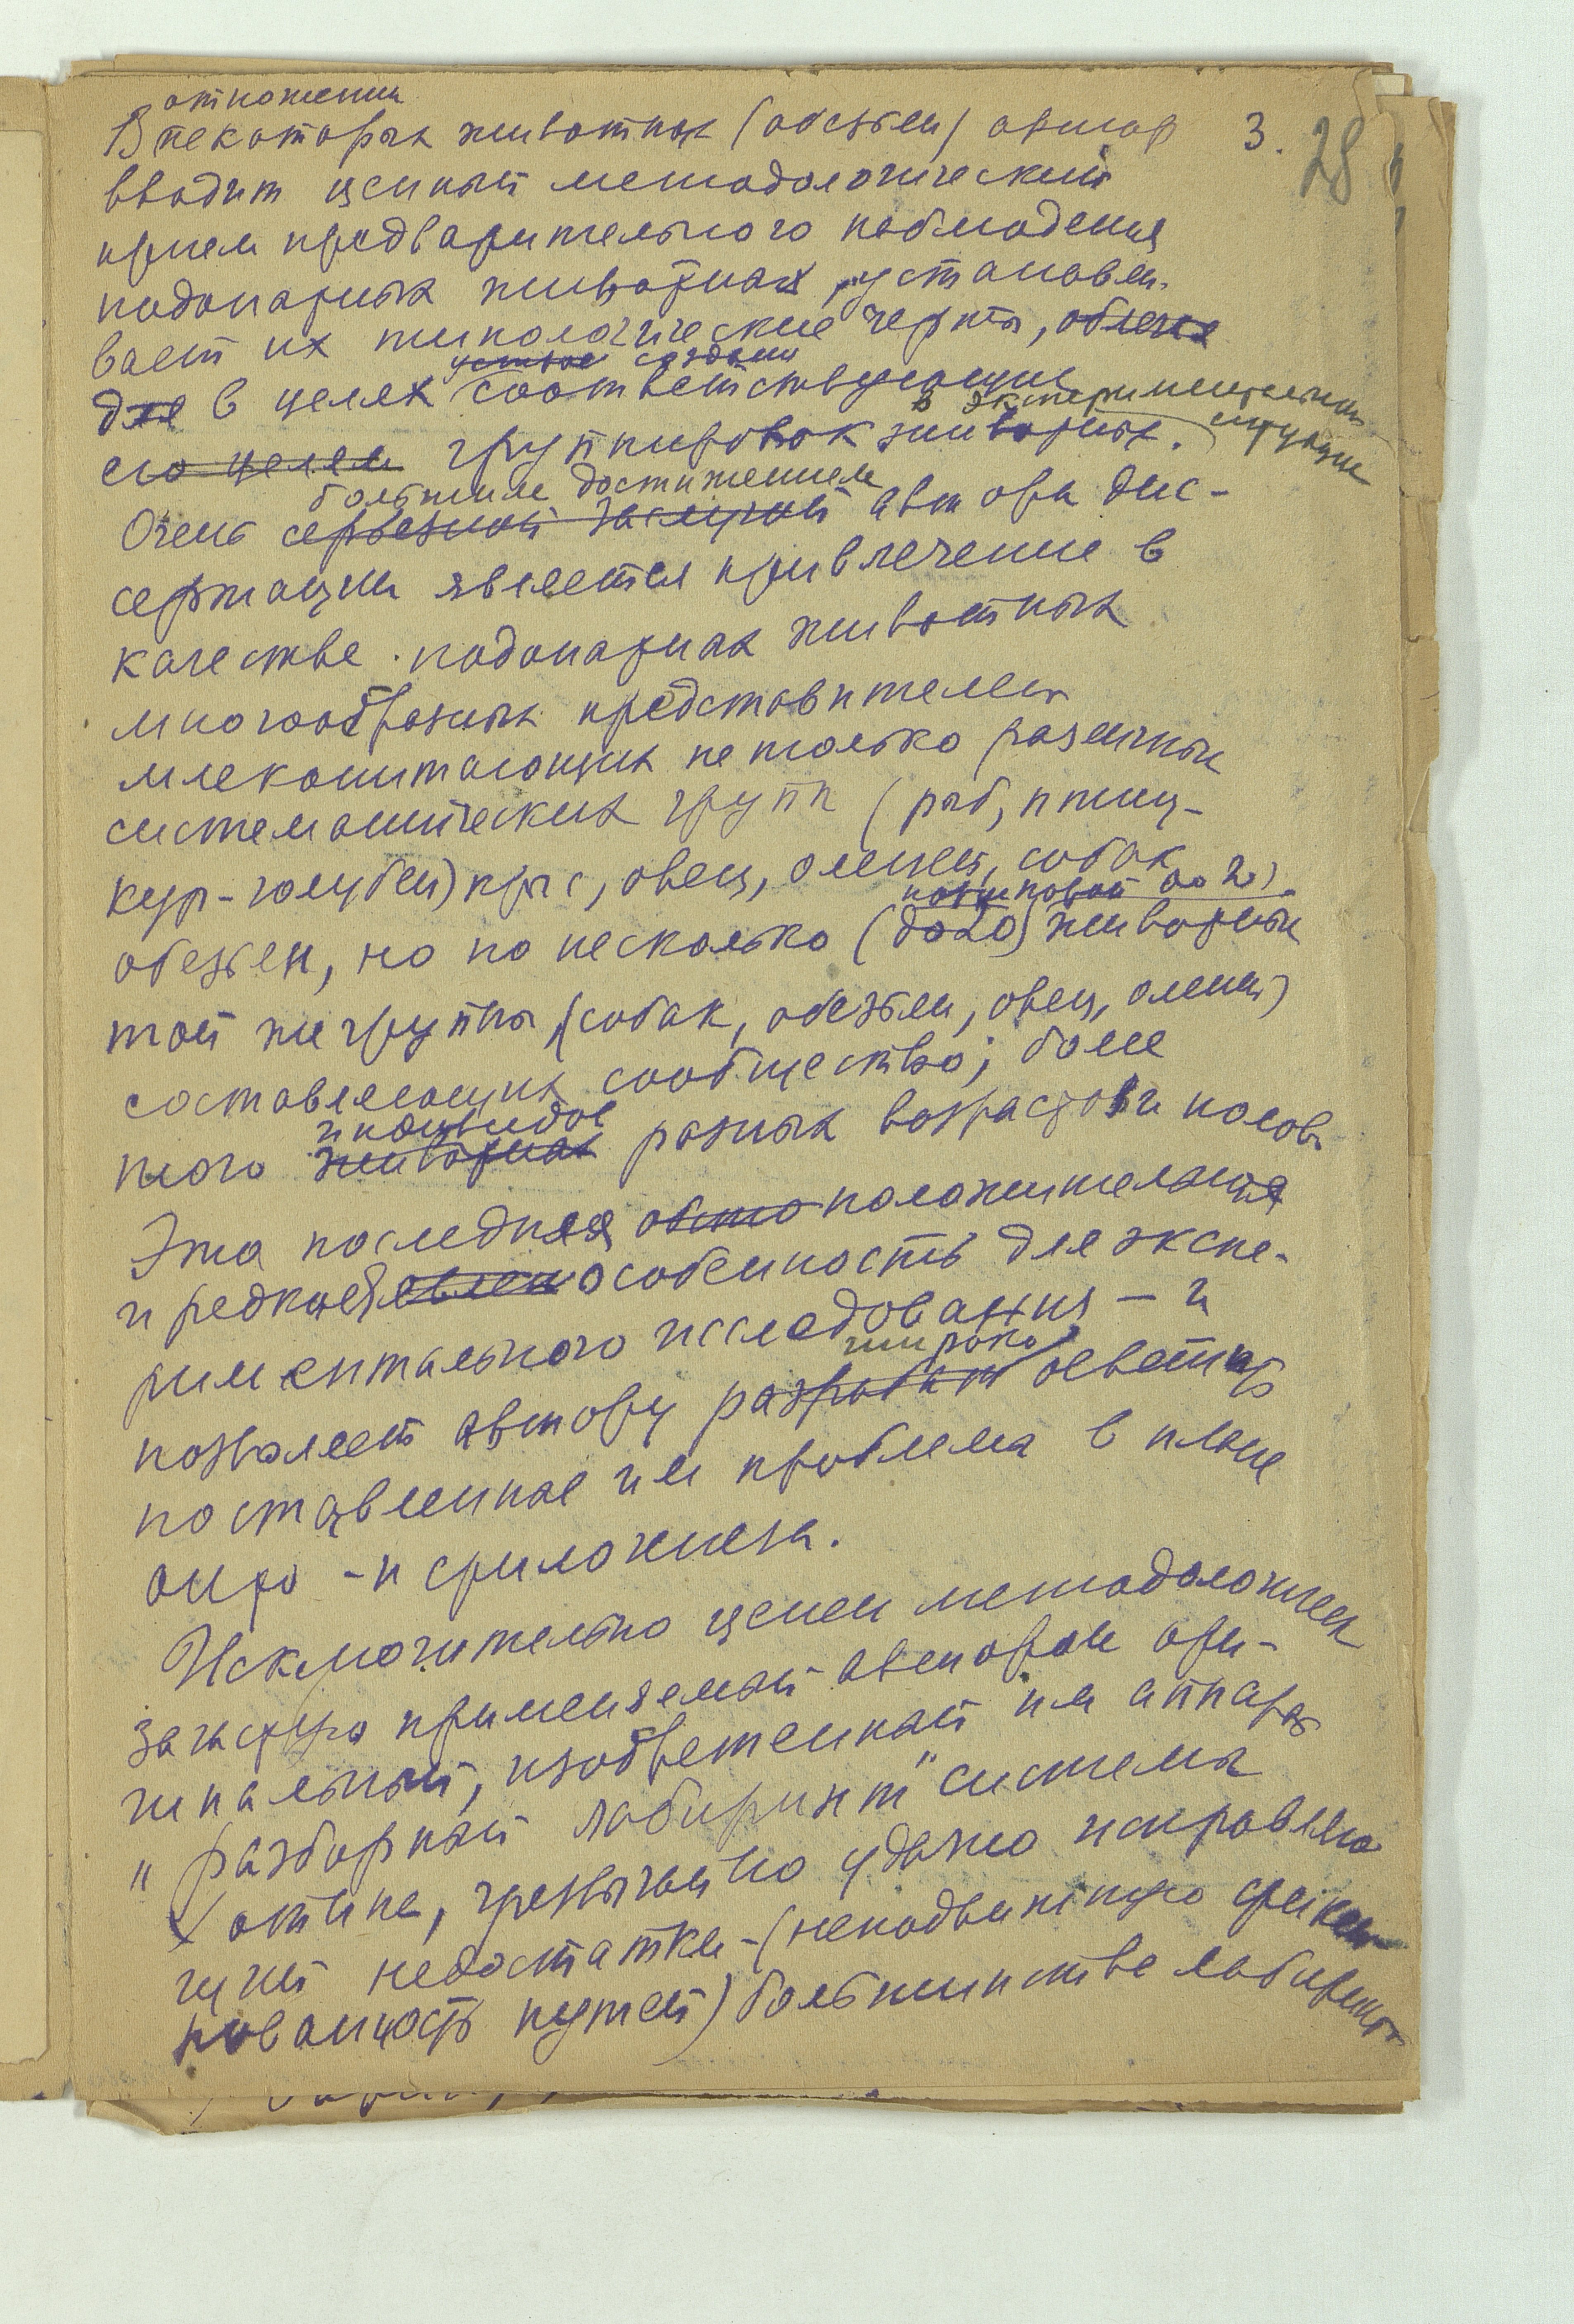 отношении
В некоторых животных (обезьян) автор 3. 28
вводит ценный методологический
прием предварительного наблюдения
подопытных животных, устанавли-
вает их типологические черты,
создания
для в целях соответствующих
в экспериментальной ситуации
его целям группировок животных.
большим достижением
Очень серьезной заслугой автора дис-
сертации является привлечение в
качестве подопытных животных
многообразных представителей
млекопитающих не только различных
систематических групп (рыб, птиц-
кур-голубей) крыс, овец, оленей, собак
обезьян, но по несколько (до 20) животных
той же группы (собак, обезьян, овец, оленей)
составляющих сообщество; более
индивидов
того животных разных возрастов и полов.
Эта последняя положительная
и редкая особенность для экспе-
риментального исследования – и
широко
позволяет автору осветить
поставленные им проблемы в плане
онто-и филогенеза.
Исключительно ценен методологически
зачастую применяемый автором ори-
гинальный, изобретенный им аппарат
"разборный лабиринт" система
Хотина, чрезвычайно удачно исправляю
щий недостатки - (неподвижную фикси-
рованность путей) большинства лабиринтов